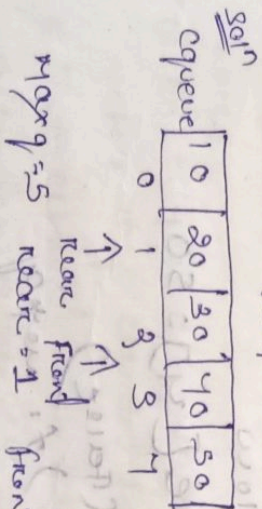 Soln
cqueue 10 20 30 40 50
0 1 2 3 4
↑ rear ↑ Front
Maxq = 5 rear = 1 fron